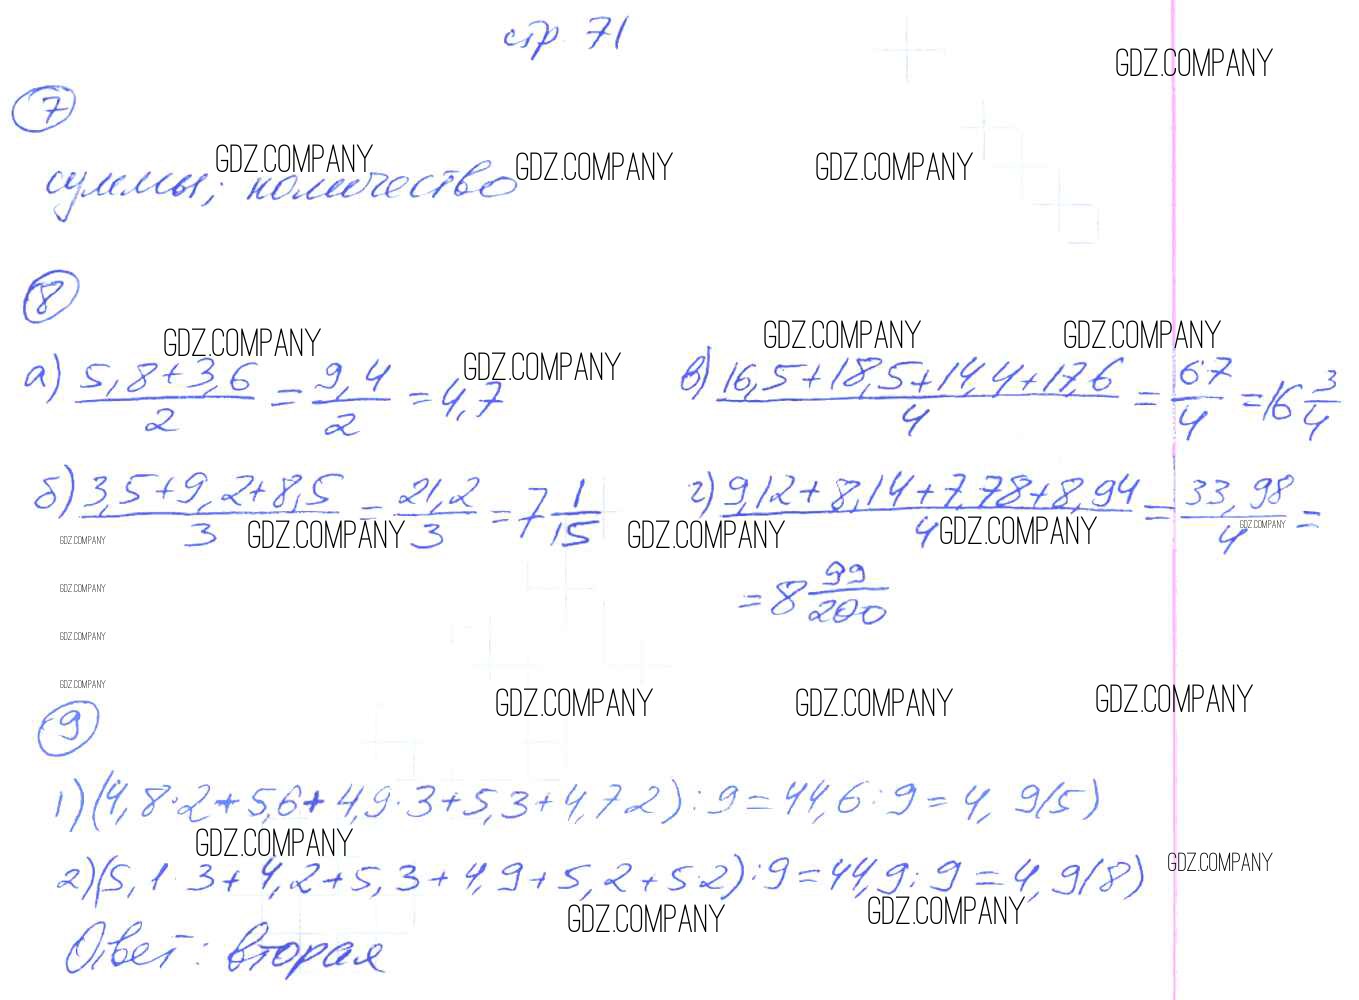 стр. 71
GDZ.COMPANY
7
GDZ.COMPANY GDZ.COMPANY GDZ.COMPANY
суммы; количество
8
GDZ.COMPANY GDZ.COMPANY GDZ.COMPANY GDZ.COMPANY
а) (5,8+3,6)/2 = 9,4/2 = 4,7
в) (16,5+18,5+14,4+17,6)/4 = 67/4 = 16 3/4
б) (3,5+9,2+8,5)/3 = 21,2/3 = 7 1/15
г) (9,12+8,14+7,78+8,94)/4 = 33,98/4 =
= 8 99/200
GDZ.COMPANY GDZ.COMPANY GDZ.COMPANY GDZ.COMPANY
GDZ.COMPANY
GDZ.COMPANY
GDZ.COMPANY
GDZ.COMPANY
GDZ.COMPANY GDZ.COMPANY GDZ.COMPANY
9
1) (4,8·2+5,6+4,9·3+5,3+4,7·2):9=44,6:9=4,9(5)
GDZ.COMPANY
2) (5,1·3+4,2+5,3+4,9+5,2+5·2):9=44,9:9=4,9(8)
GDZ.COMPANY
GDZ.COMPANY GDZ.COMPANY
Ответ: вторая